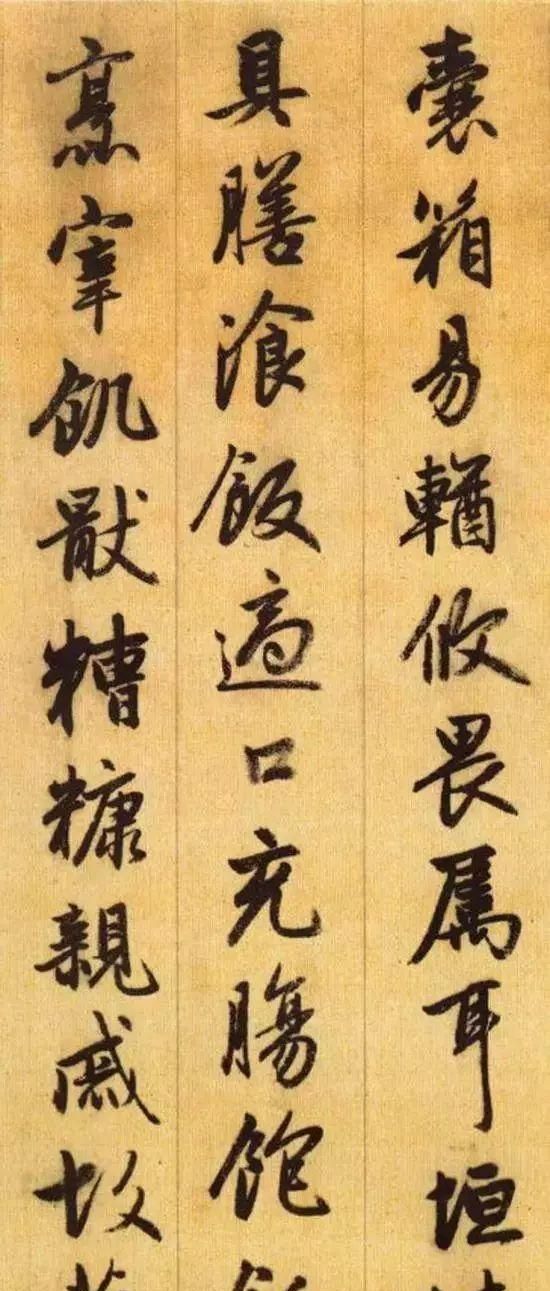 囊箱易輶攸畏属耳垣
具膳湌飯適口充腸飽
烹宰飢猒糟糠親戚故